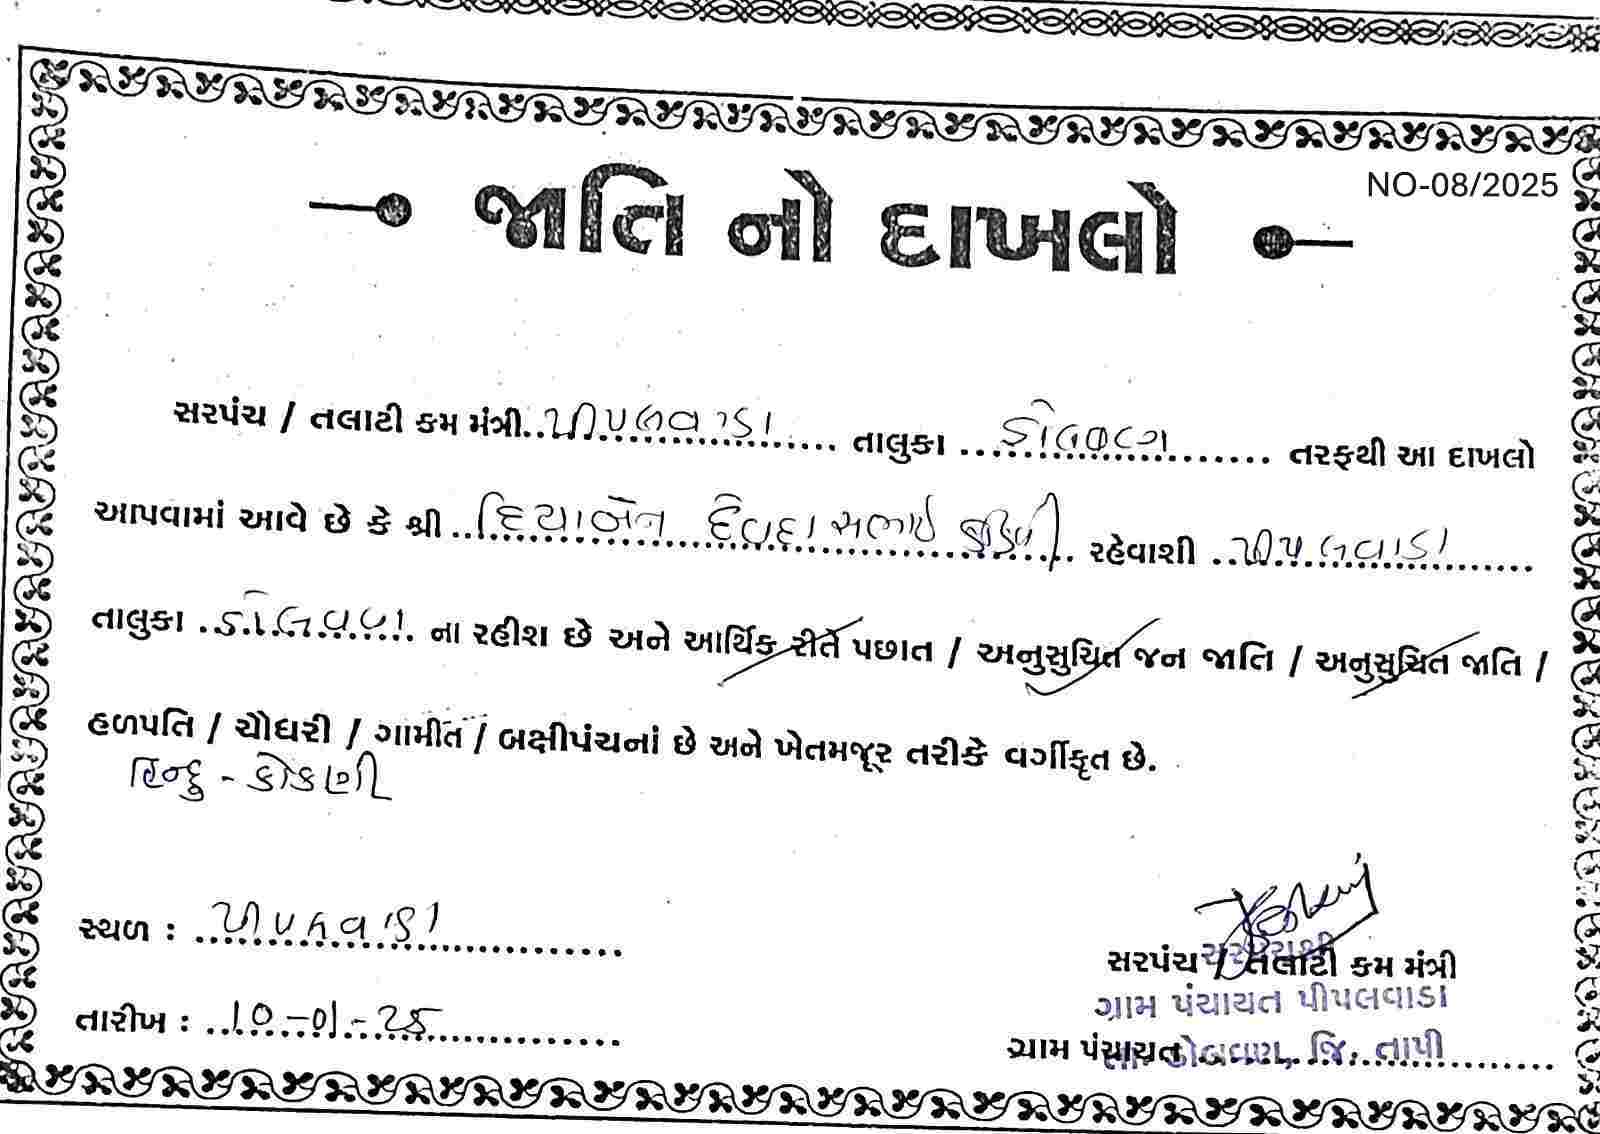 NO-08/2025
જાતિ નો દાખલો
સરપંચ / તલાટી કમ મંત્રી પીપલવાડા તાલુકા ડોલવણ તરફથી આ દાખલો
આપવામાં આવે છે કે શ્રી દિયાબેન દેવદાસભાઇ રહેવાશી પીપલવાડા
તાલુકા ડોલવણ ના રહીશ છે અને આર્થિક રીતે પછાત / અનુસુચિત જન જાતિ / અનુસુચિત જાતિ /
હળપતિ / ચૌધરી / ગામીત / બક્ષીપંચનાં છે અને ખેતમજૂર તરીકે વર્ગીકૃત છે.
હિન્દુ - કોકણી
સ્થળ : પીપલવાડા
સરપંચશ્રી
સરપંચ / તલાટી કમ મંત્રી
ગ્રામ પંચાયત પીપલવાડા
તારીખ : 10-01-25
ગ્રામ પંચાયત
તા. ડોલવણ, જિ. તાપી